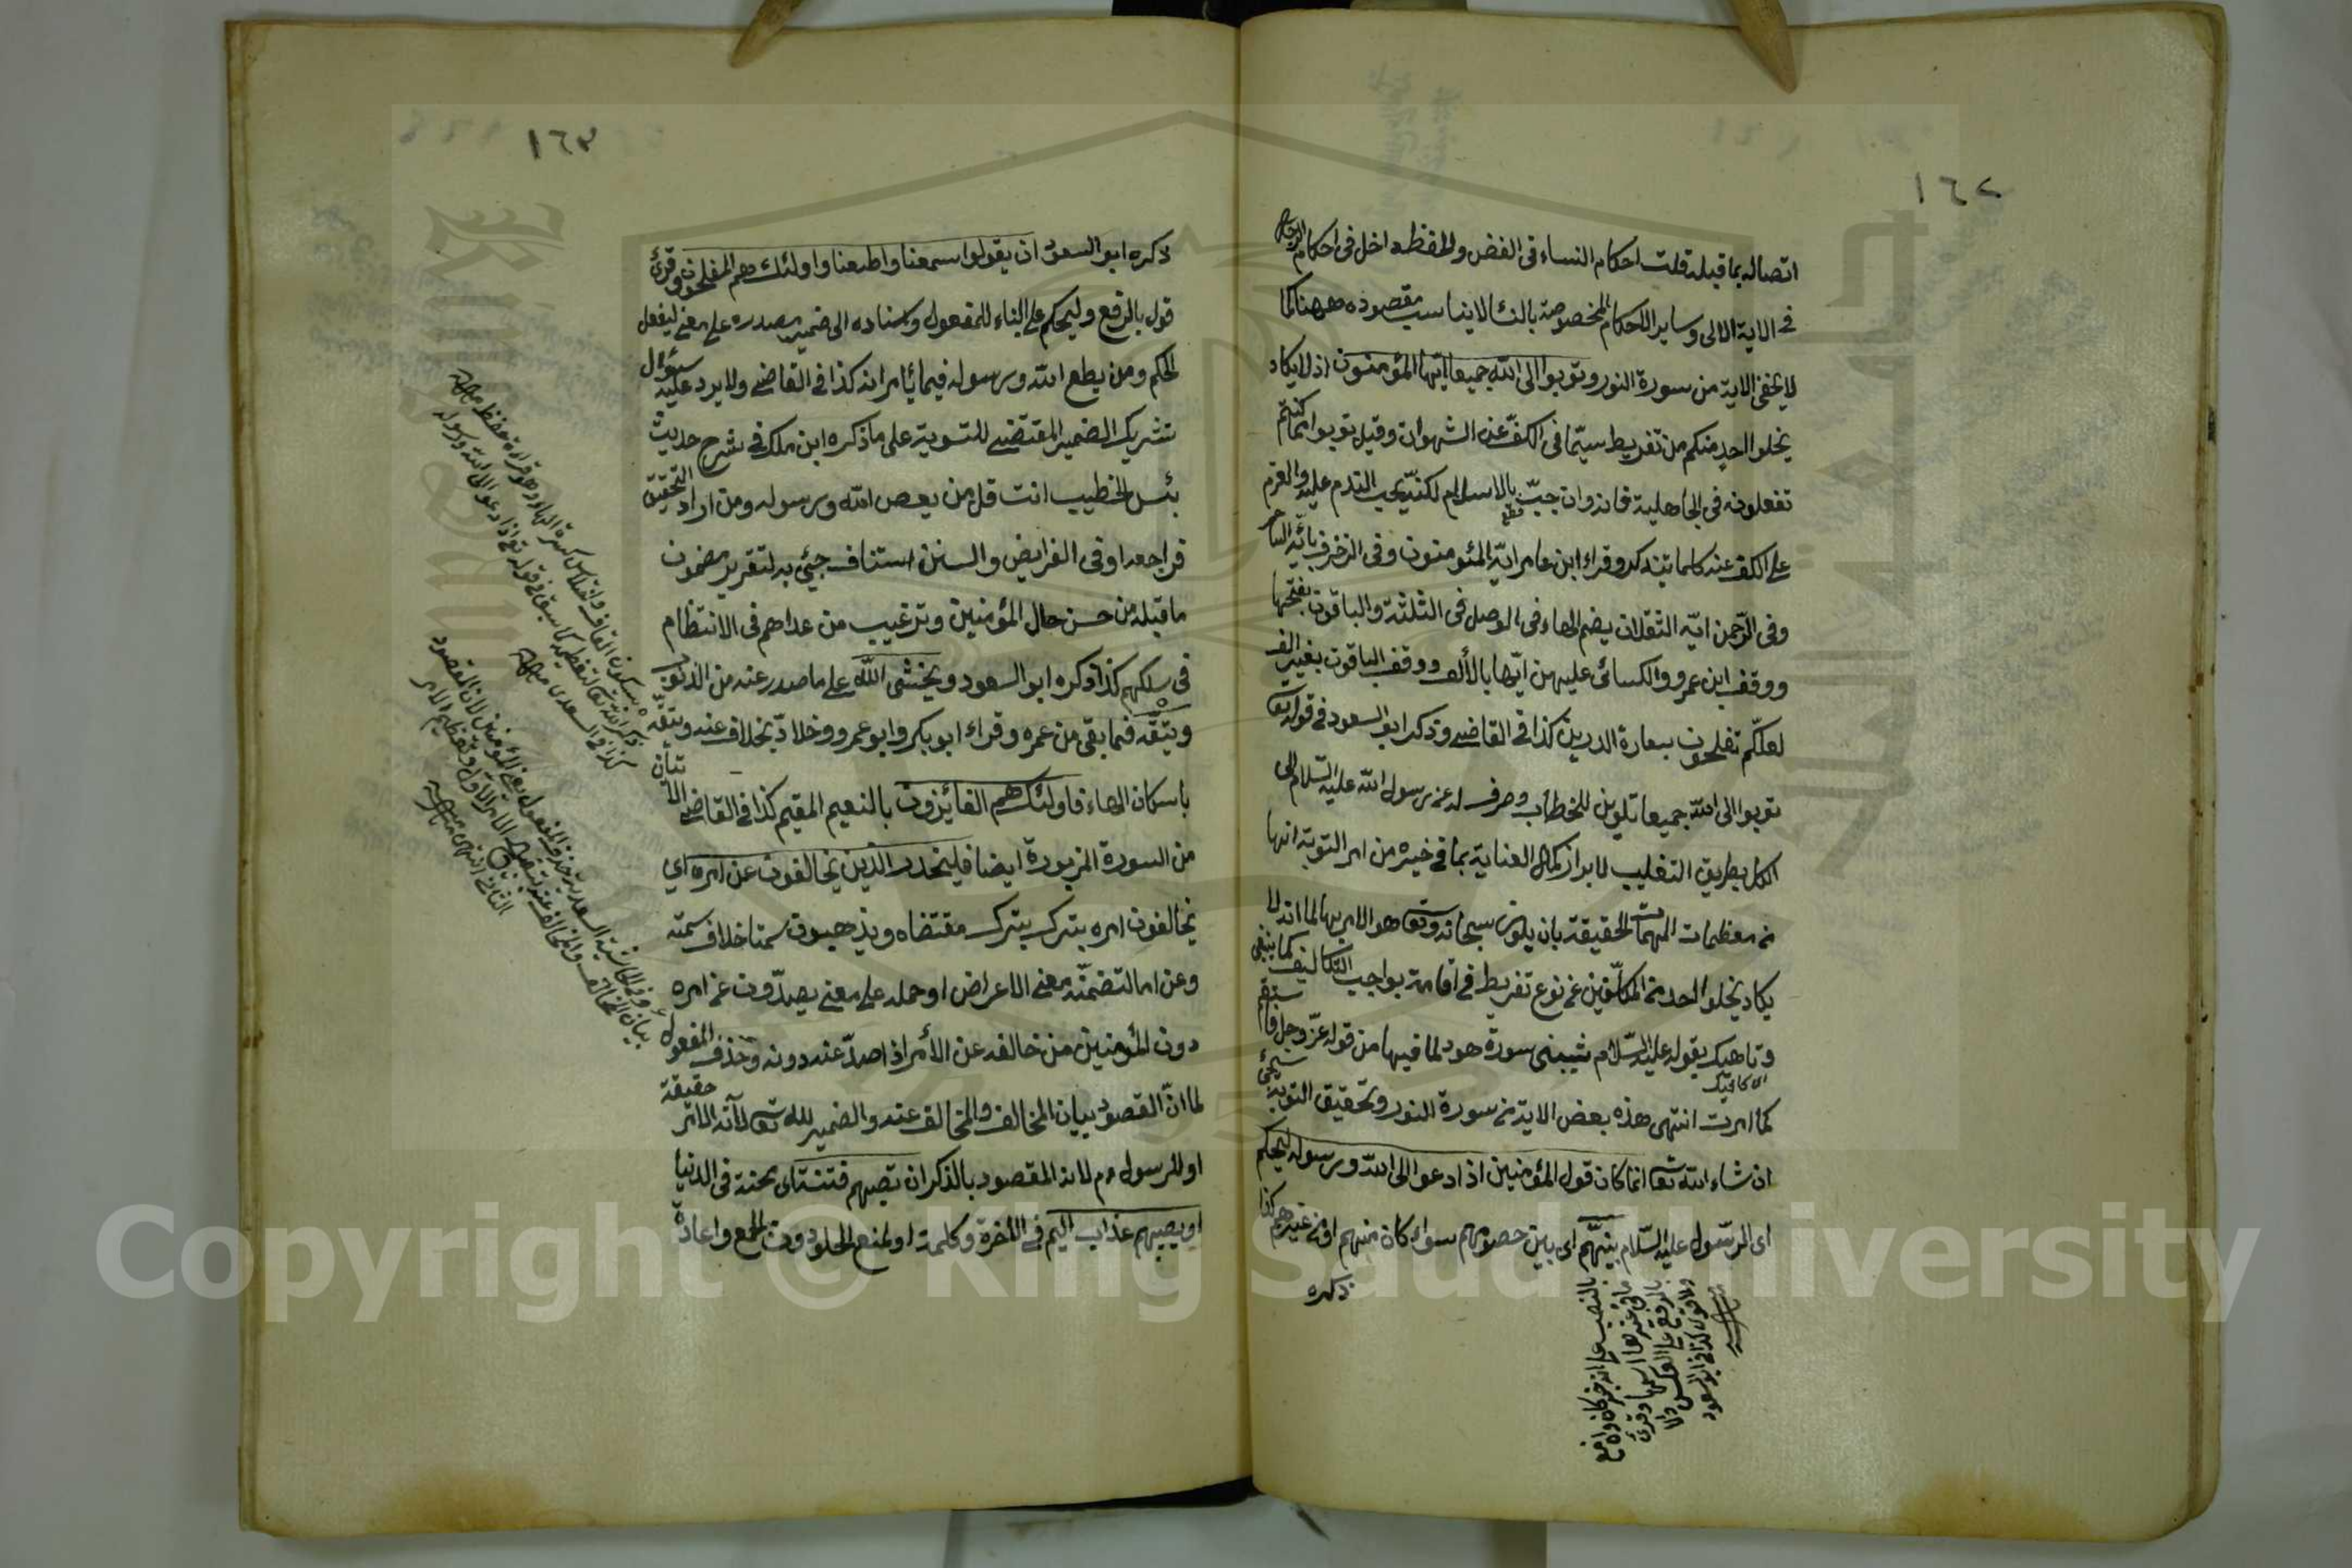 ١٦٢
اتصاله بما قبله قلت احكام النساء فى الغض والحفظ داخل فى احكام الرجال
فى الاية الاولى وساير الاحكام المخصوصة بالنساء لا يناسب مقصوده ههنا كما
لا يخفى الاية من سورة النور وتوبوا الى الله جميعا ايها المؤمنون اذ لا يكاد
يخلوا احد منكم من تفريط سيما فى الكف عن الشهوات وقيل توبوا مما كنتم
تفعلونه فى الجاهلية فانه وان جبّ بالاسلام لكنه يجب الندم عليه والعزم
قطع
على الكف عنه كلما يتذكر وقراء ابن عامر ايه المؤمنون وفى الزخرف يا ايه الساحر
وفى الرحمن ايه الثقلان بضم الهاء فى الوصل فى الثلثة والباقون بفتحها
ووقف ابن عمرو والكسائى عليهن ايها بالألف ووقف الباقون بغير الف
لعلكم تفلحون بسعادة الدارين كذا فى القاضى وذكر ابو السعود فى قوله تعا
توبوا الى الله جميعا تلوين للخطاب وصرف له عن رسول الله عليه السلام الى
الكل بطريق التغليب لابراز كمال العناية بما فى حيزه من امر التوبة انها
من معظمات المهمات الحقيقة بان يكون سبحانه وتعا هو الامر بها لما انه لا
يكاد يخلوا احد من المكلفين عن نوع تفريط فى اقامة بواجب التكاليف كما ينبغى
وناهيك بقوله عليه السلام شيبتنى سورة هود لما فيها من قوله عز وجل فاستقم
اى كافيك
كما امرت انتهى هذه بعض الاية من سورة النور وتحقيق التوبة سيجئ
ان شاء الله تعا انما كان قول المؤمنين اذا دعوا الى الله ورسوله ليحكم
اى الرسول عليه السلام بينهم اى بين خصومهم سواء كان منهم او من غيرهم كذا
ذكره
بالنصب على انه خبر كان وان مع
ما فى حيزها اسمها وقرئ
بالرفع على العكس والا
ول اقوى كذا فى ابو السعود
١٦٣
ذكره ابو السعود ان يقولوا سمعنا واطعنا واولئك هم المفلحون وقرئ
قول بالرفع وليحكم على البناء للمفعول واسناده الى ضمير مصدره على معنى ليفعل
الحكم ومن يطع الله ورسوله فيما يأمرانه كذا فى القاضى ولا يرد عليه سؤال
تشريك الضمير المقتضى للتسوية على ما ذكره ابن ملك فى شرح حديث
بئس الخطيب انت قل من يعص الله ورسوله ومن اراد التحقيق
فراجعه او فى الفرايض والسنن استناف جيئ به لتقرير مضمون
ما قبله من حسن حال المؤمنين وترغيب من عداهم فى الانتظام
فى سلكهم كذا ذكره ابو السعود ويخشى الله على ما صدر عنه من الذنوب
ويتقه فيما بقى من عمره وقراء ابو بكر وابو عمرو وخلاد بخلاف عنه ويتقه
باسكان الهاء فاولئك هم الفائزون بالنعيم المقيم كذا فى القاضى الايتان
من السورة المزبورة ايضا فليحذر الذين يخالفون عن امره اى
يخالفون امره بترك بترك مقتضاه ويذهبون سمتا خلاف سمته
وعن اما لتضمنه معنى الاعراض او حمله على معنى يصدون عن امره
دون المؤمنين من خالفه عن الأمر اذا صد عنه دونه وحذف المفعول
لما ان المقصود بيان المخالف والمخالف عنه والضمير لله تعا لأنه الامر حقيقة
او للرسول عم لانه المقصود بالذكر ان تصيبهم فتنة اى محنة فى الدنيا
او يصيبهم عذاب اليم فى الآخرة وكلمة او لمنع الخلو دون الجمع واعادة
Copyright © King Saud University